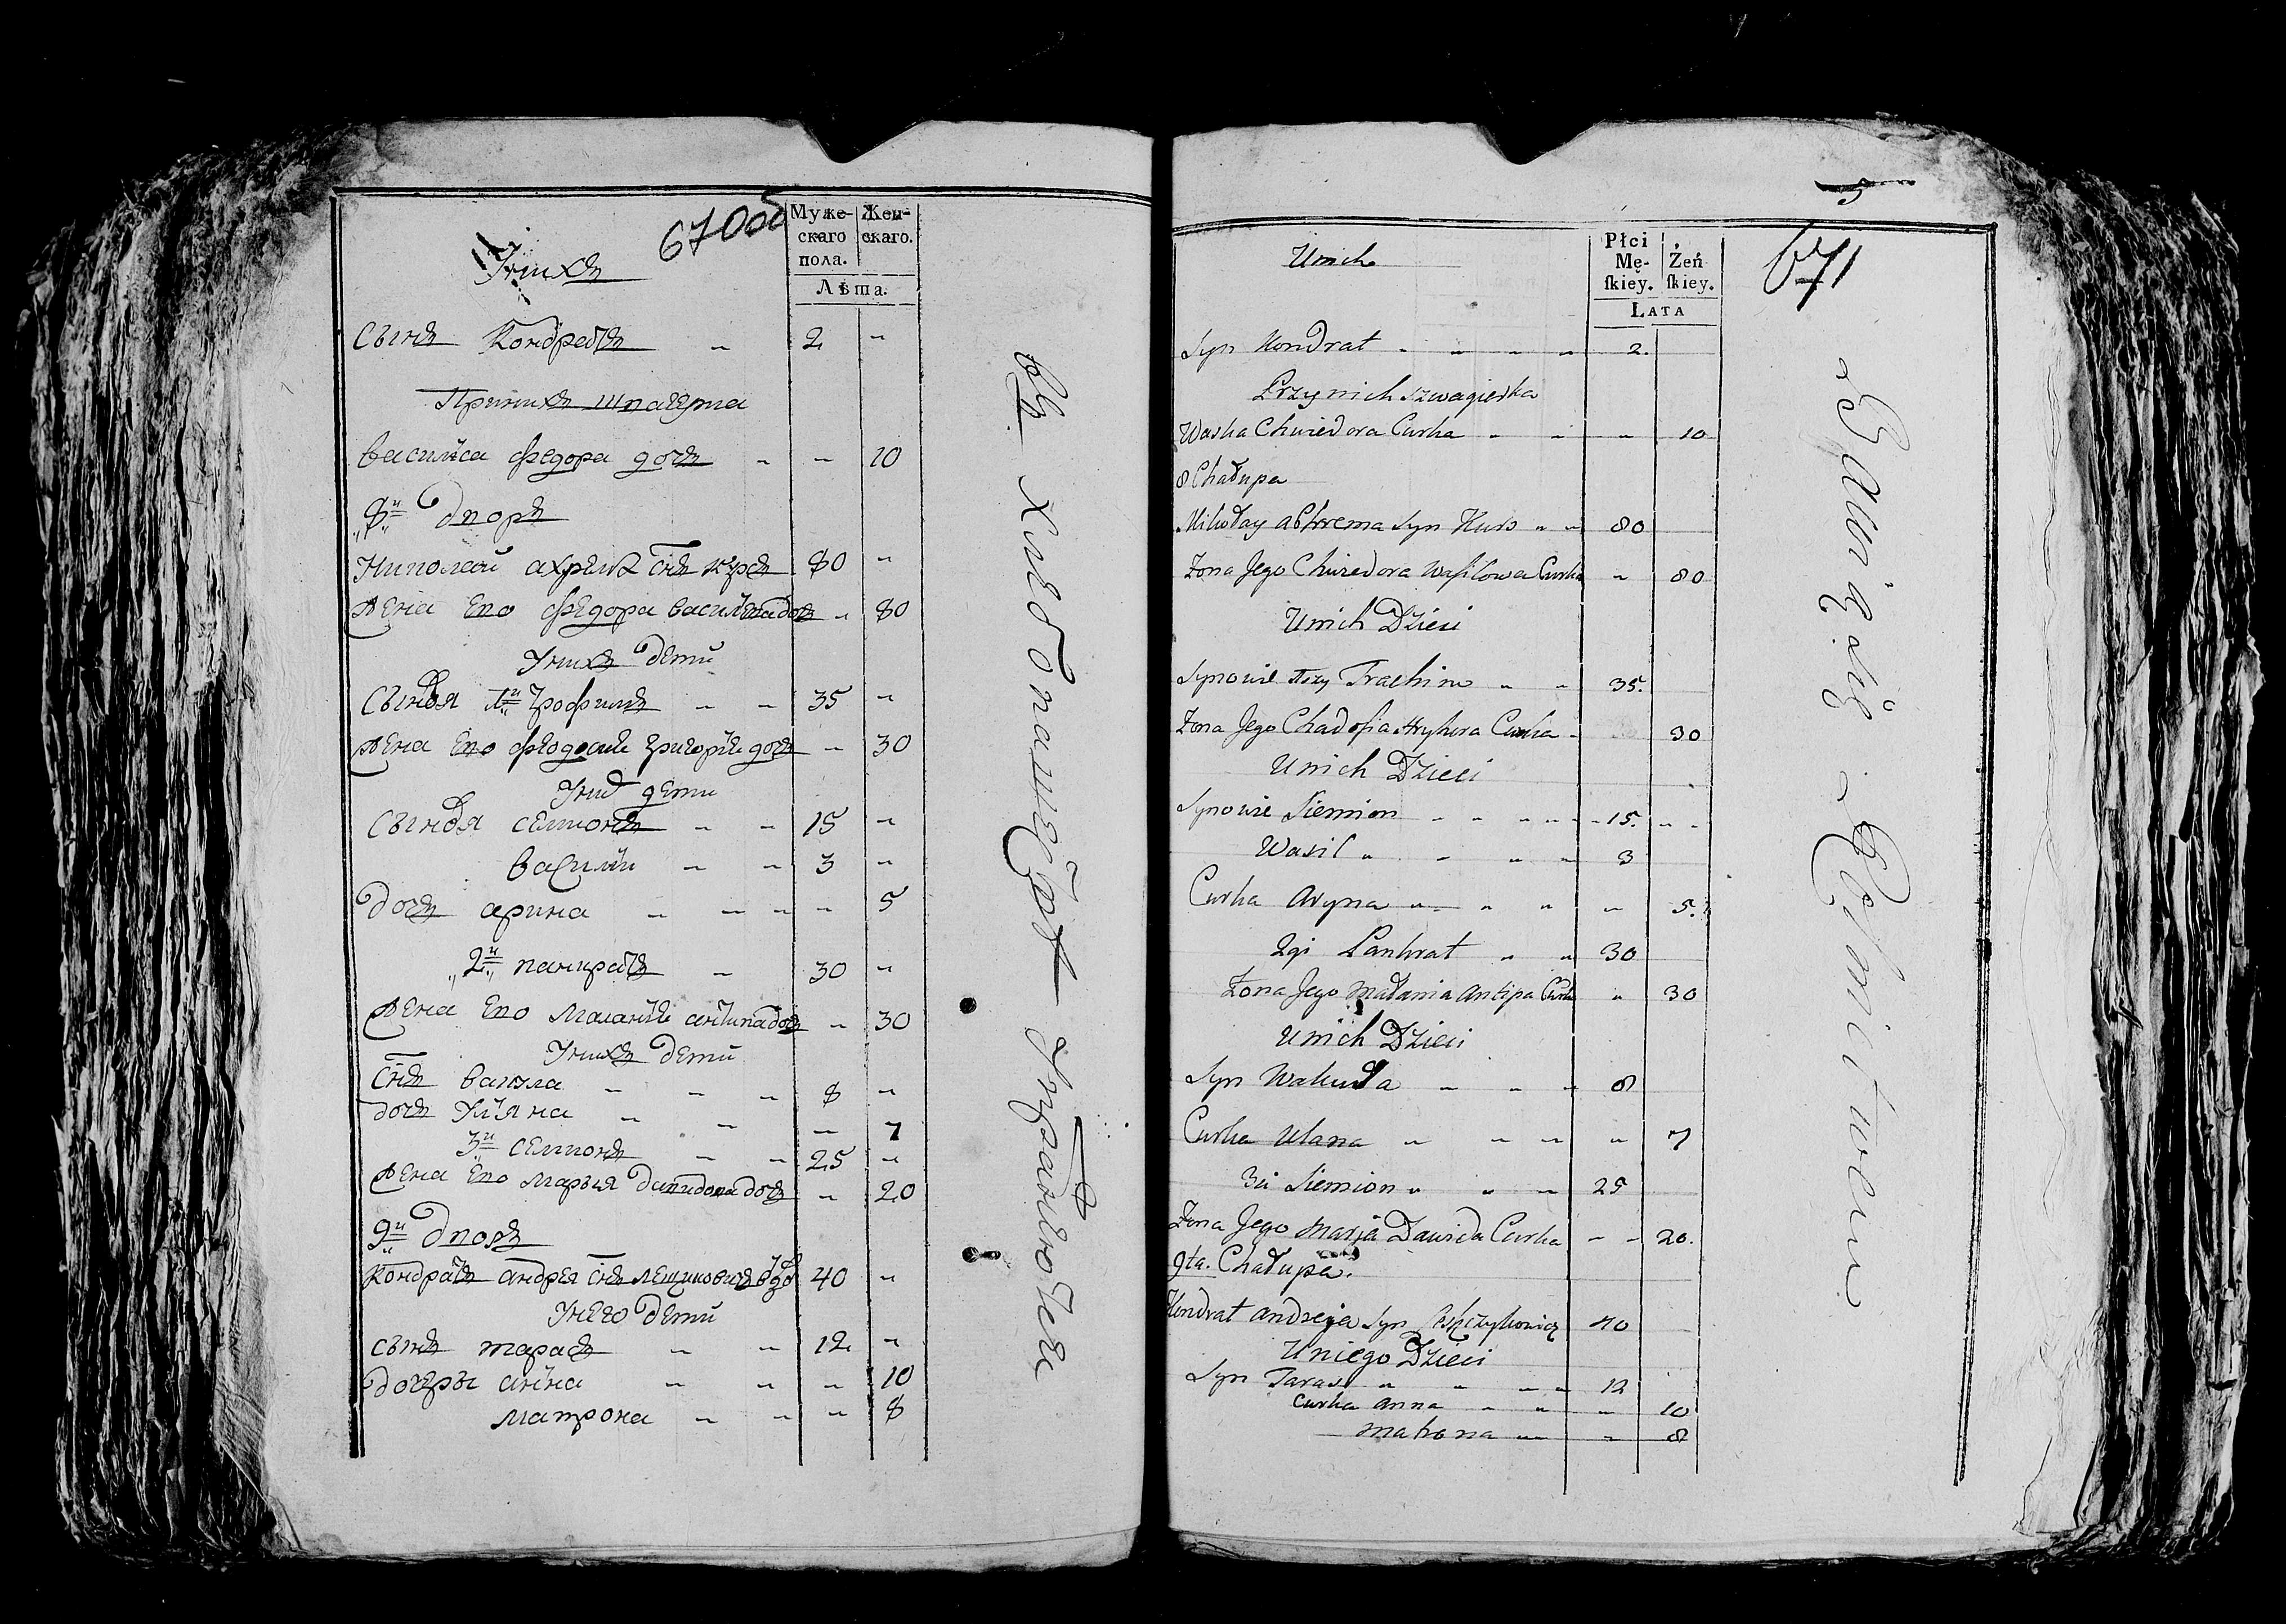 670об
Муже-
скаго
пола.
Жен-
скаго.
Лѣта.
У нихъ
Сынъ Кондратъ " 2 "
При нихъ швагерка
Василиса Федора дочь " " 10
8й Дворъ
Николай Ахрема снъ Куръ 80 "
Жена его Федора Васильева дочь " 80
У нихъ Дети
Сыновья 1й Трофимъ " " 35 "
Жена его Феодосия Григорие дочь " 30
У них дети
Сыновья Семионъ " " 15 "
Василий " " 3 "
Дочь Арина " " " " 5
2й Панкратъ " 30 "
Жена его Маланiя Антипа дочь " 30
У нихъ Дети
Снъ Вакула " " " 8 "
дочь Улияна " " " 7
3й Семионъ " " 25 "
Жена его Марья Давидова дочь " 20
9й Дворъ
Кондратъ Андрея снъ 40 "
У него Дети
Сынъ Тарасъ " " 12 "
Дочеры Анна " " " 10
Матрона " " " 8
Въ хлебопашестве упражняются
5
671
Płci
Mę-
ſkiey.
Żeń
ſkiey.
Lata
Unich
Syn Kondrat " " " " 2.
Przynich szwagierka
Waska Chwiedora Curka " " " 10
8 Chałupa
Mikołay achrema Syn Kuro " " 80
Zona Jego Chwiedora Wasilowa Curka " 80
Unich Dzieci
Synowie Trachim " " 35.
Zona Jego Chadosia Hryhora Curka " 30
Unich Dzieci
Synowie Siemion " " " " " 15. " "
Wasil " " " " 3
Curka Aryna " " " " 5.
2gi Pankrat " " 30
Zona Jego Małania Antipa Curka " 30
Unich Dzieci
Syn Wakuła " " " 8
Curka Ulana " " " " 7
3ci Siemion " " " 25
Zona Jego Marja Dawida Curka " " 20.
9ta. Chałupa.
Kondrat Andreja Syn 40
Uniego Dzieci
Syn Taras " " " " 12
Curka Anna " " " 10
Matrona " " 8
Bawią się Rolnictwem